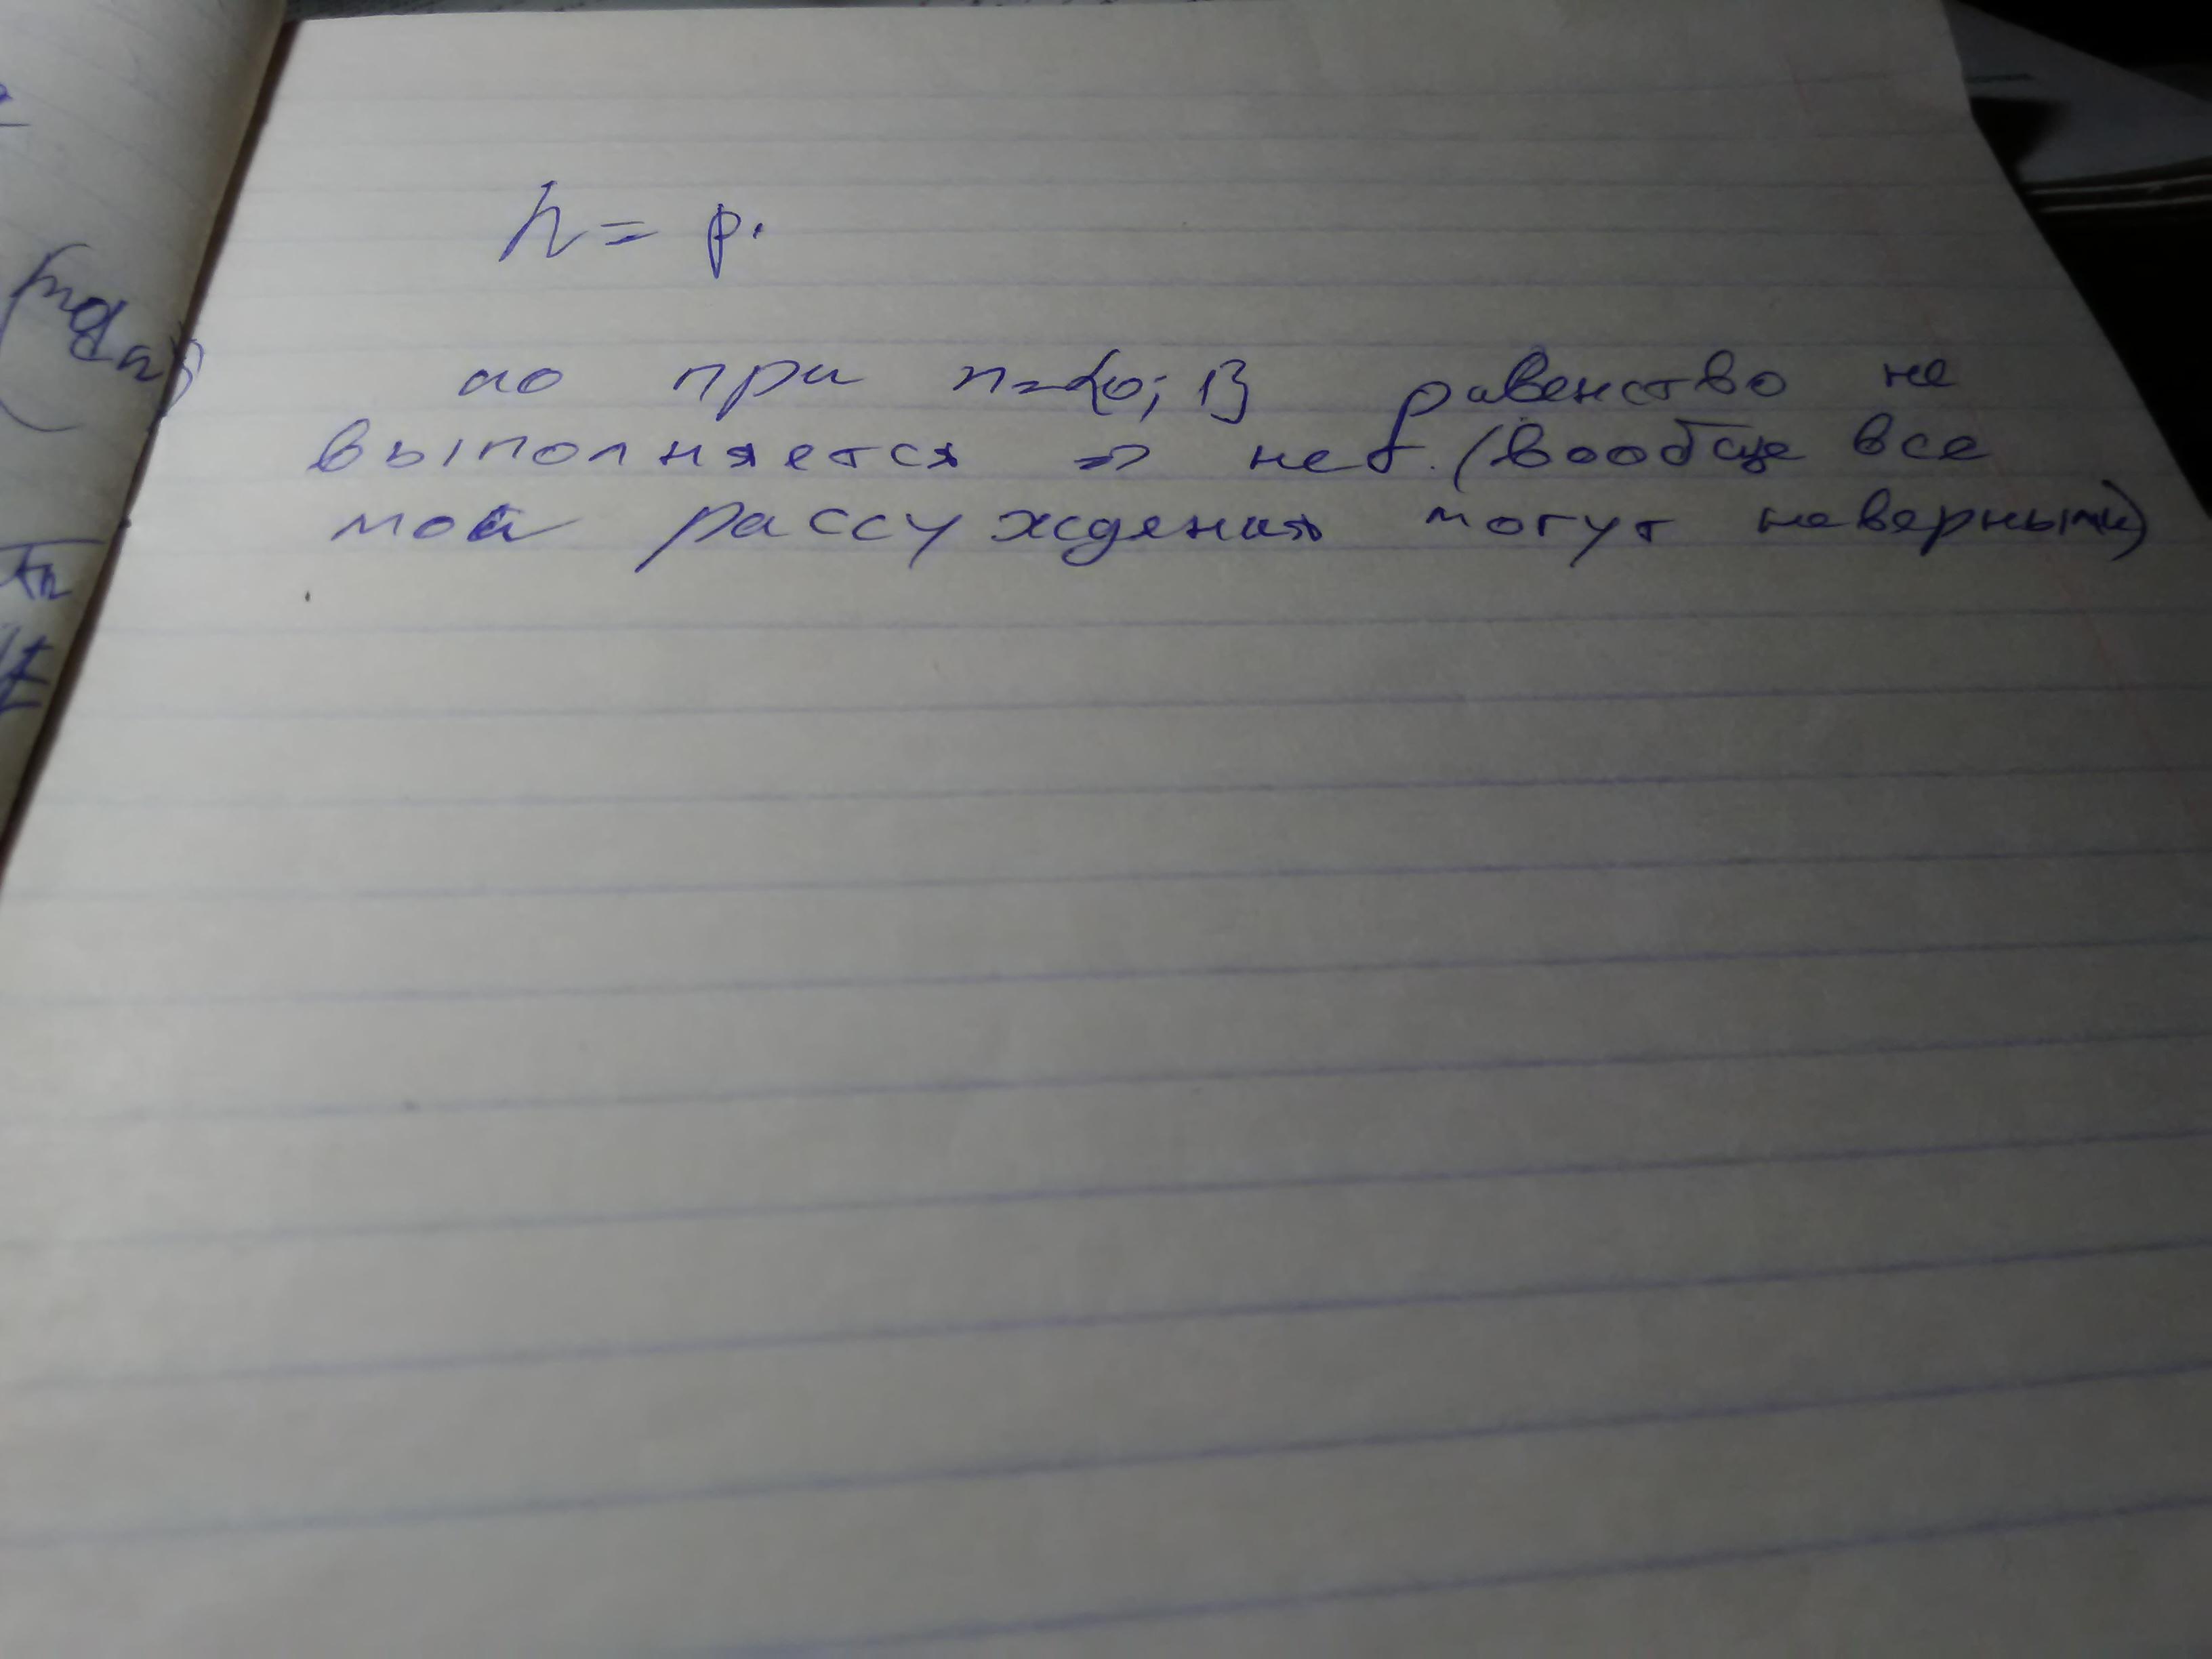 n = p.
но при n={0; 1} равенство не
выполняется => нет. (вообще все
мои рассуждения могут неверными)